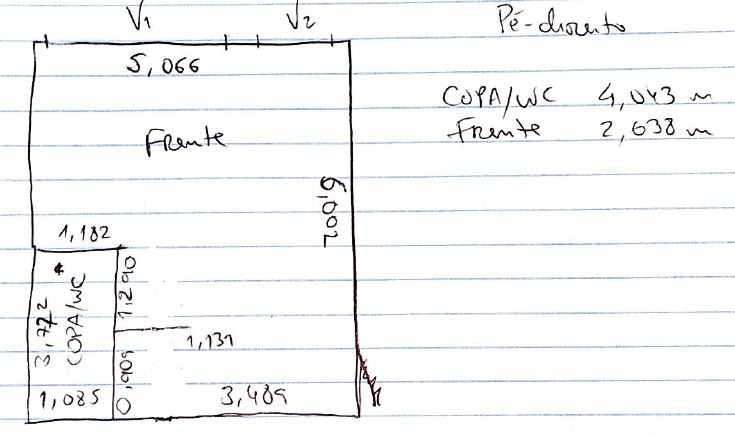 V1 V2
Pé-direito
5,066
COPA/WC 4,043 m
Frente 2,638 m
Frente
6,002
1,182
1,290
COPA/WC
1,131
0,909
1,085
3,489